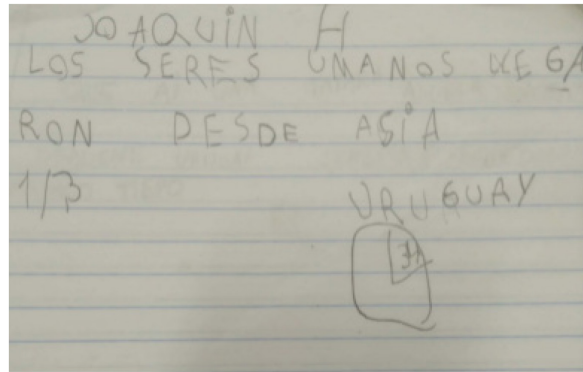 JOAQUIN H
LOS SERES UMANOS LLEGA
RON DESDE ASIA
1/3
URUGUAY